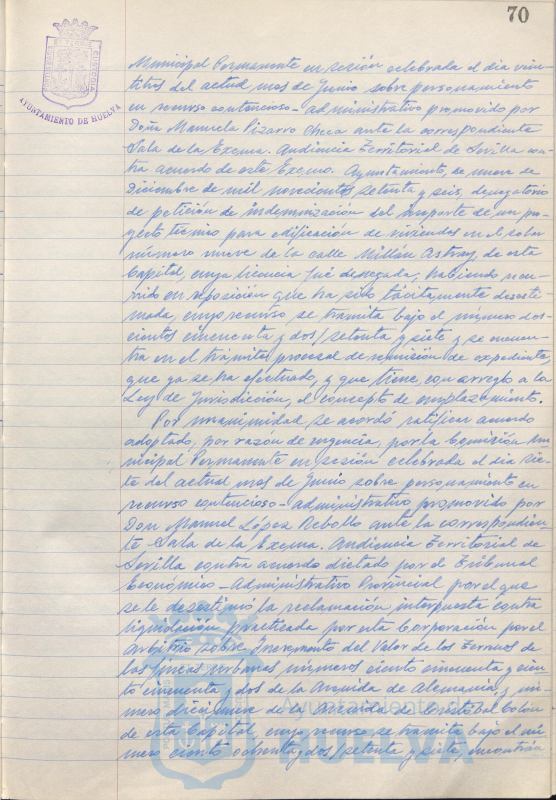 70
AYUNTAMIENTO DE HUELVA
Municipal Permanente en sesión celebrada el día vein-
titres del actual mes de Junio sobre personamiento
en recurso contencioso-administrativo promovido por
Doña Manuela Pizarro Checa ante la correspondiente
Sala de la Excma. Audiencia Territorial de Sevilla con-
tra acuerdo de este Excmo. Ayuntamiento, de nueve de
Diciembre de mil novecientos setenta y seis, denegatorio
de petición de indemnización del importe de un pro-
yecto técnico para edificación de viviendas en el solar
número nueve de la calle Millán Astray, de esta
Capital, cuya licencia fué denegada, habiendo recu-
rrido en reposición que ha sido tácitamente desesti-
mada, cuyo recurso se tramita bajo el número dos-
cientos cincuenta y dos/setenta y siete y se encuen-
tra en el trámite procesal de remisión de expediente,
que ya se ha efectuado, y que tiene, con arreglo a la
Ley de Jurisdicción, el concepto de emplazamiento.
Por unanimidad se acordó ratificar acuerdo
adoptado, por razón de urgencia, por la Comisión Mu-
nicipal Permanente en sesión celebrada el día sie-
te del actual mes de Junio sobre personamiento en
recurso contencioso-administrativo promovido por
Don Manuel López Rebollo ante la correspondien-
te Sala de la Excma. Audiencia Territorial de
Sevilla contra acuerdo dictado por el Tribunal
Económico-Administrativo Provincial por el que
se le desestimó la reclamación interpuesta contra
liquidación practicada por esta Corporación por el
arbitrio sobre Incremento del Valor de los Terrenos de
las fincas urbanas números ciento cincuenta y cien-
to cincuenta y dos de la Avenida de Alemania, y nú-
mero diecinueve de la Avenida de Cristobal Colón
de esta Capital, cuyo recurso se tramita bajo el nú-
mero ciento ochenta y dos/setenta y siete, encontrán
Ayuntamiento de
HUELVA